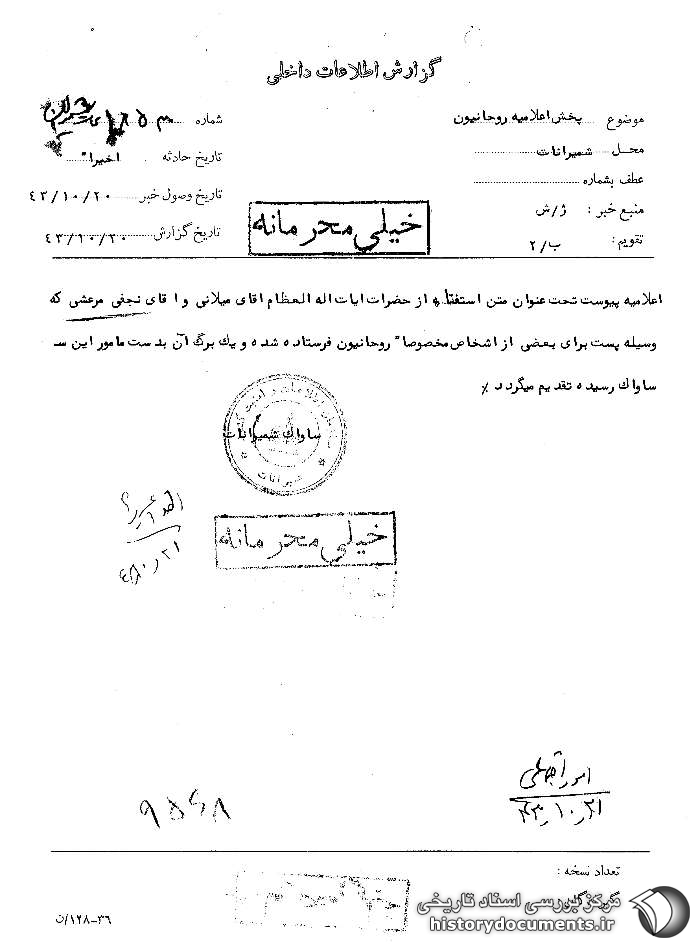 گزارش اطلاعات داخلی
موضوع پخش اعلامیه روحانیون
محل شمیرانات
عطف بشماره
منبع خبر : ژ/ش
تقویم : ب/۲
شماره
تاریخ حادثه اخیرا"
تاریخ وصول خبر ۴۳/۱۰/۲۰
تاریخ گزارش ۴۳/۱۰/۲۰
خیلی محرمانه
اعلامیه پیوست تحت عنوان متن استفتا از حضرات ایات اله العظام اقای میلانی و اقای نجفی مرعشی که
وسیله پست برای بعضی از اشخاص مخصوصا" روحانیون فرستاده شده و یک برگ آن بدست مامور این سـ
ساواک رسیده تقدیم میگردد ٪
ساواک شمیرانات
شمیرانات
خیلی محرمانه
۴۳٫۱۰٫۲۱
تعداد نسخه :
۳۶-۱۲۸/ن
مرکز بررسی اسناد تاریخی
historydocuments.ir